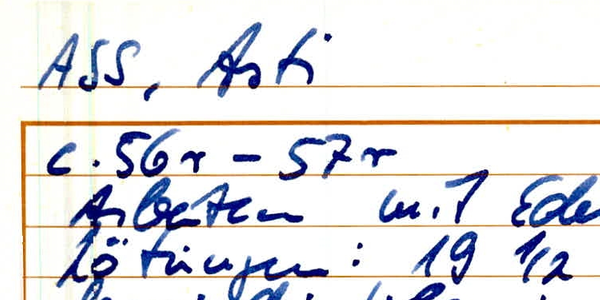 ASS, Asti
c. 56r - 57r
Arbeiten mit Ede
lötungen: 19 1/2